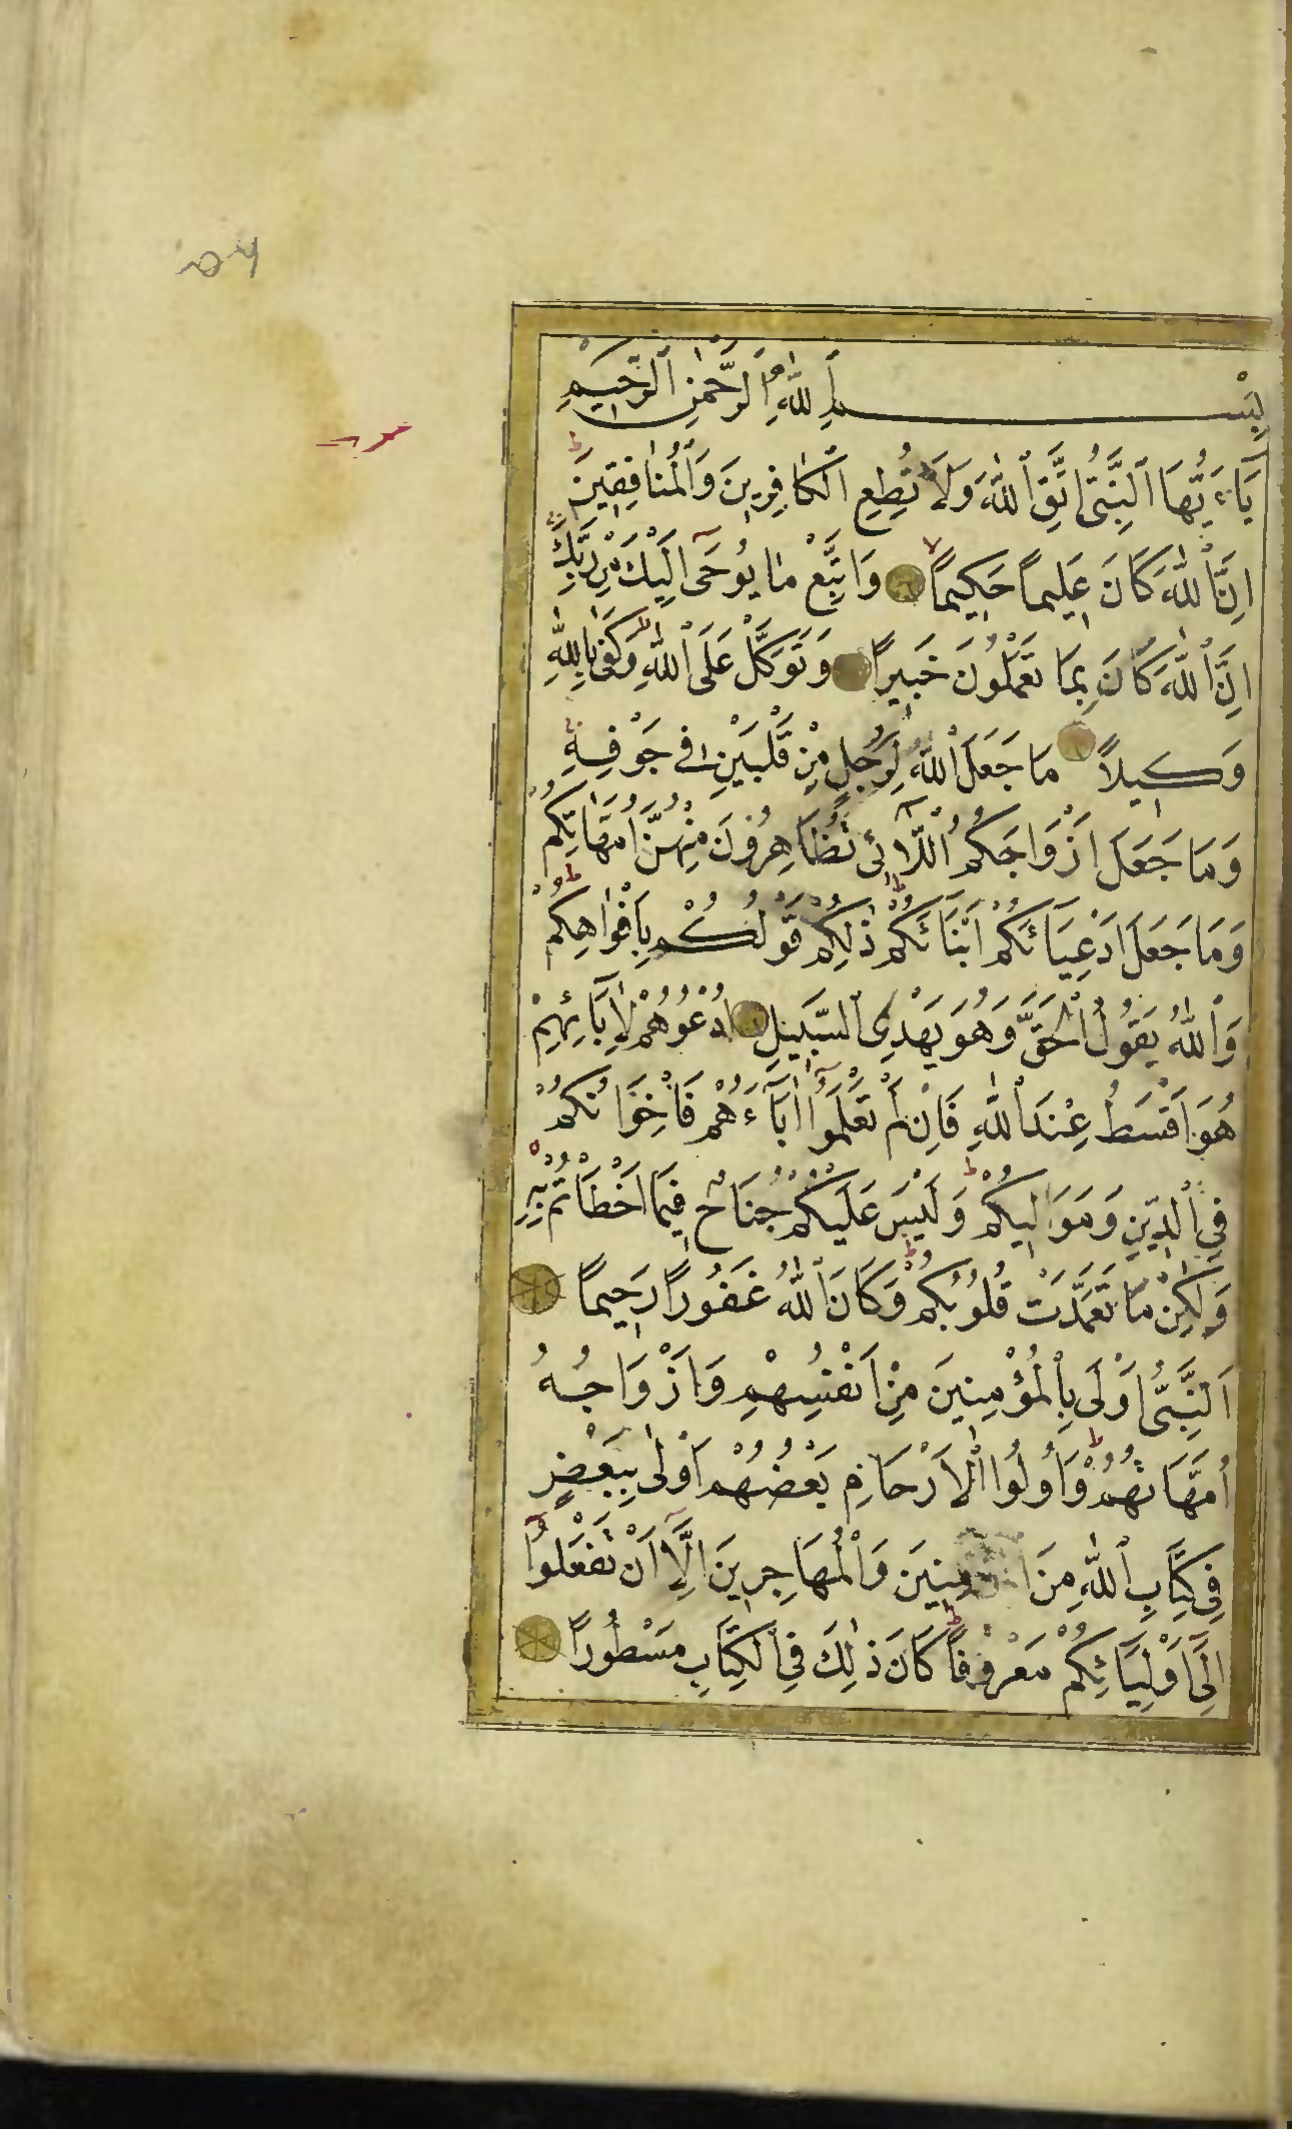 بِسْمِ ٱللّٰهِ ٱلرَّحْمٰنِ ٱلرَّحِيمِ
يَاءَيُّهَا ٱلنَّبِيُّ اتَّقِ ٱللّٰهَ وَلَا تُطِعِ الْكَافِرِينَ وَٱلْمُنَافِقِينَ
اِنَّ ٱللّٰهَ كَانَ عَلِيماً حَكِيماً وَاتَّبِعْ مَا يُوحَى اِلَيْكَ مِنْ رَبِّكَ
اِنَّ ٱللّٰهَ كَانَ بِمَا تَعْمَلُونَ خَبِيراً وَتَوَكَّلْ عَلَى ٱللّٰهِ وَكَفٰى بِاللّٰهِ
وَكِيلاً مَا جَعَلَ ٱللّٰهُ لِرَجُلٍ مِنْ قَلْبَيْنِ فِي جَوْفِهِ
وَمَا جَعَلَ اَزْوَاجَكُمُ ٱللَّائِي تُظَاهِرُونَ مِنْهُنَّ اُمَّهَاتِكُمْ
وَمَا جَعَلَ اَدْعِيَائَكُمْ اَبْنَائَكُمْ ذٰلِكُمْ قَوْلُكُمْ بِاَفْوَاهِكُمْ
وَٱللّٰهُ يَقُولُ ٱلْحَقَّ وَهُوَ يَهْدِي ٱلسَّبِيلَ اُدْعُوهُمْ لِاٰبَائِهِمْ
هُوَ اَقْسَطُ عِنْدَ ٱللّٰهِ فَاِنْ لَمْ تَعْلَمُوا اٰبَاءَهُمْ فَاِخْوَانُكُمْ
فِي ٱلدِّينِ وَمَوَالِيكُمْ وَلَيْسَ عَلَيْكُمْ جُنَاحٌ فِيمَا اَخْطَاْتُمْ بِهِ
وَلٰكِنْ مَا تَعَمَّدَتْ قُلُوبُكُمْ وَكَانَ ٱللّٰهُ غَفُوراً رَحِيماً
اَلنَّبِيُّ اَوْلَى بِٱلْمُؤْمِنِينَ مِنْ اَنْفُسِهِمْ وَاَزْوَاجُهُ
اُمَّهَاتُهُمْ وَاُولُوا ٱلْاَرْحَامِ بَعْضُهُمْ اَوْلٰى بِبَعْضٍ
فِي كِتَابِ ٱللّٰهِ مِنَ وَٱلْمُهَاجِرِينَ اِلَّا اَنْ تَفْعَلُوا
اِلَى اَوْلِيَائِكُمْ مَعْرُوفاً كَانَ ذٰلِكَ فِي ٱلْكِتَابِ مَسْطُوراً